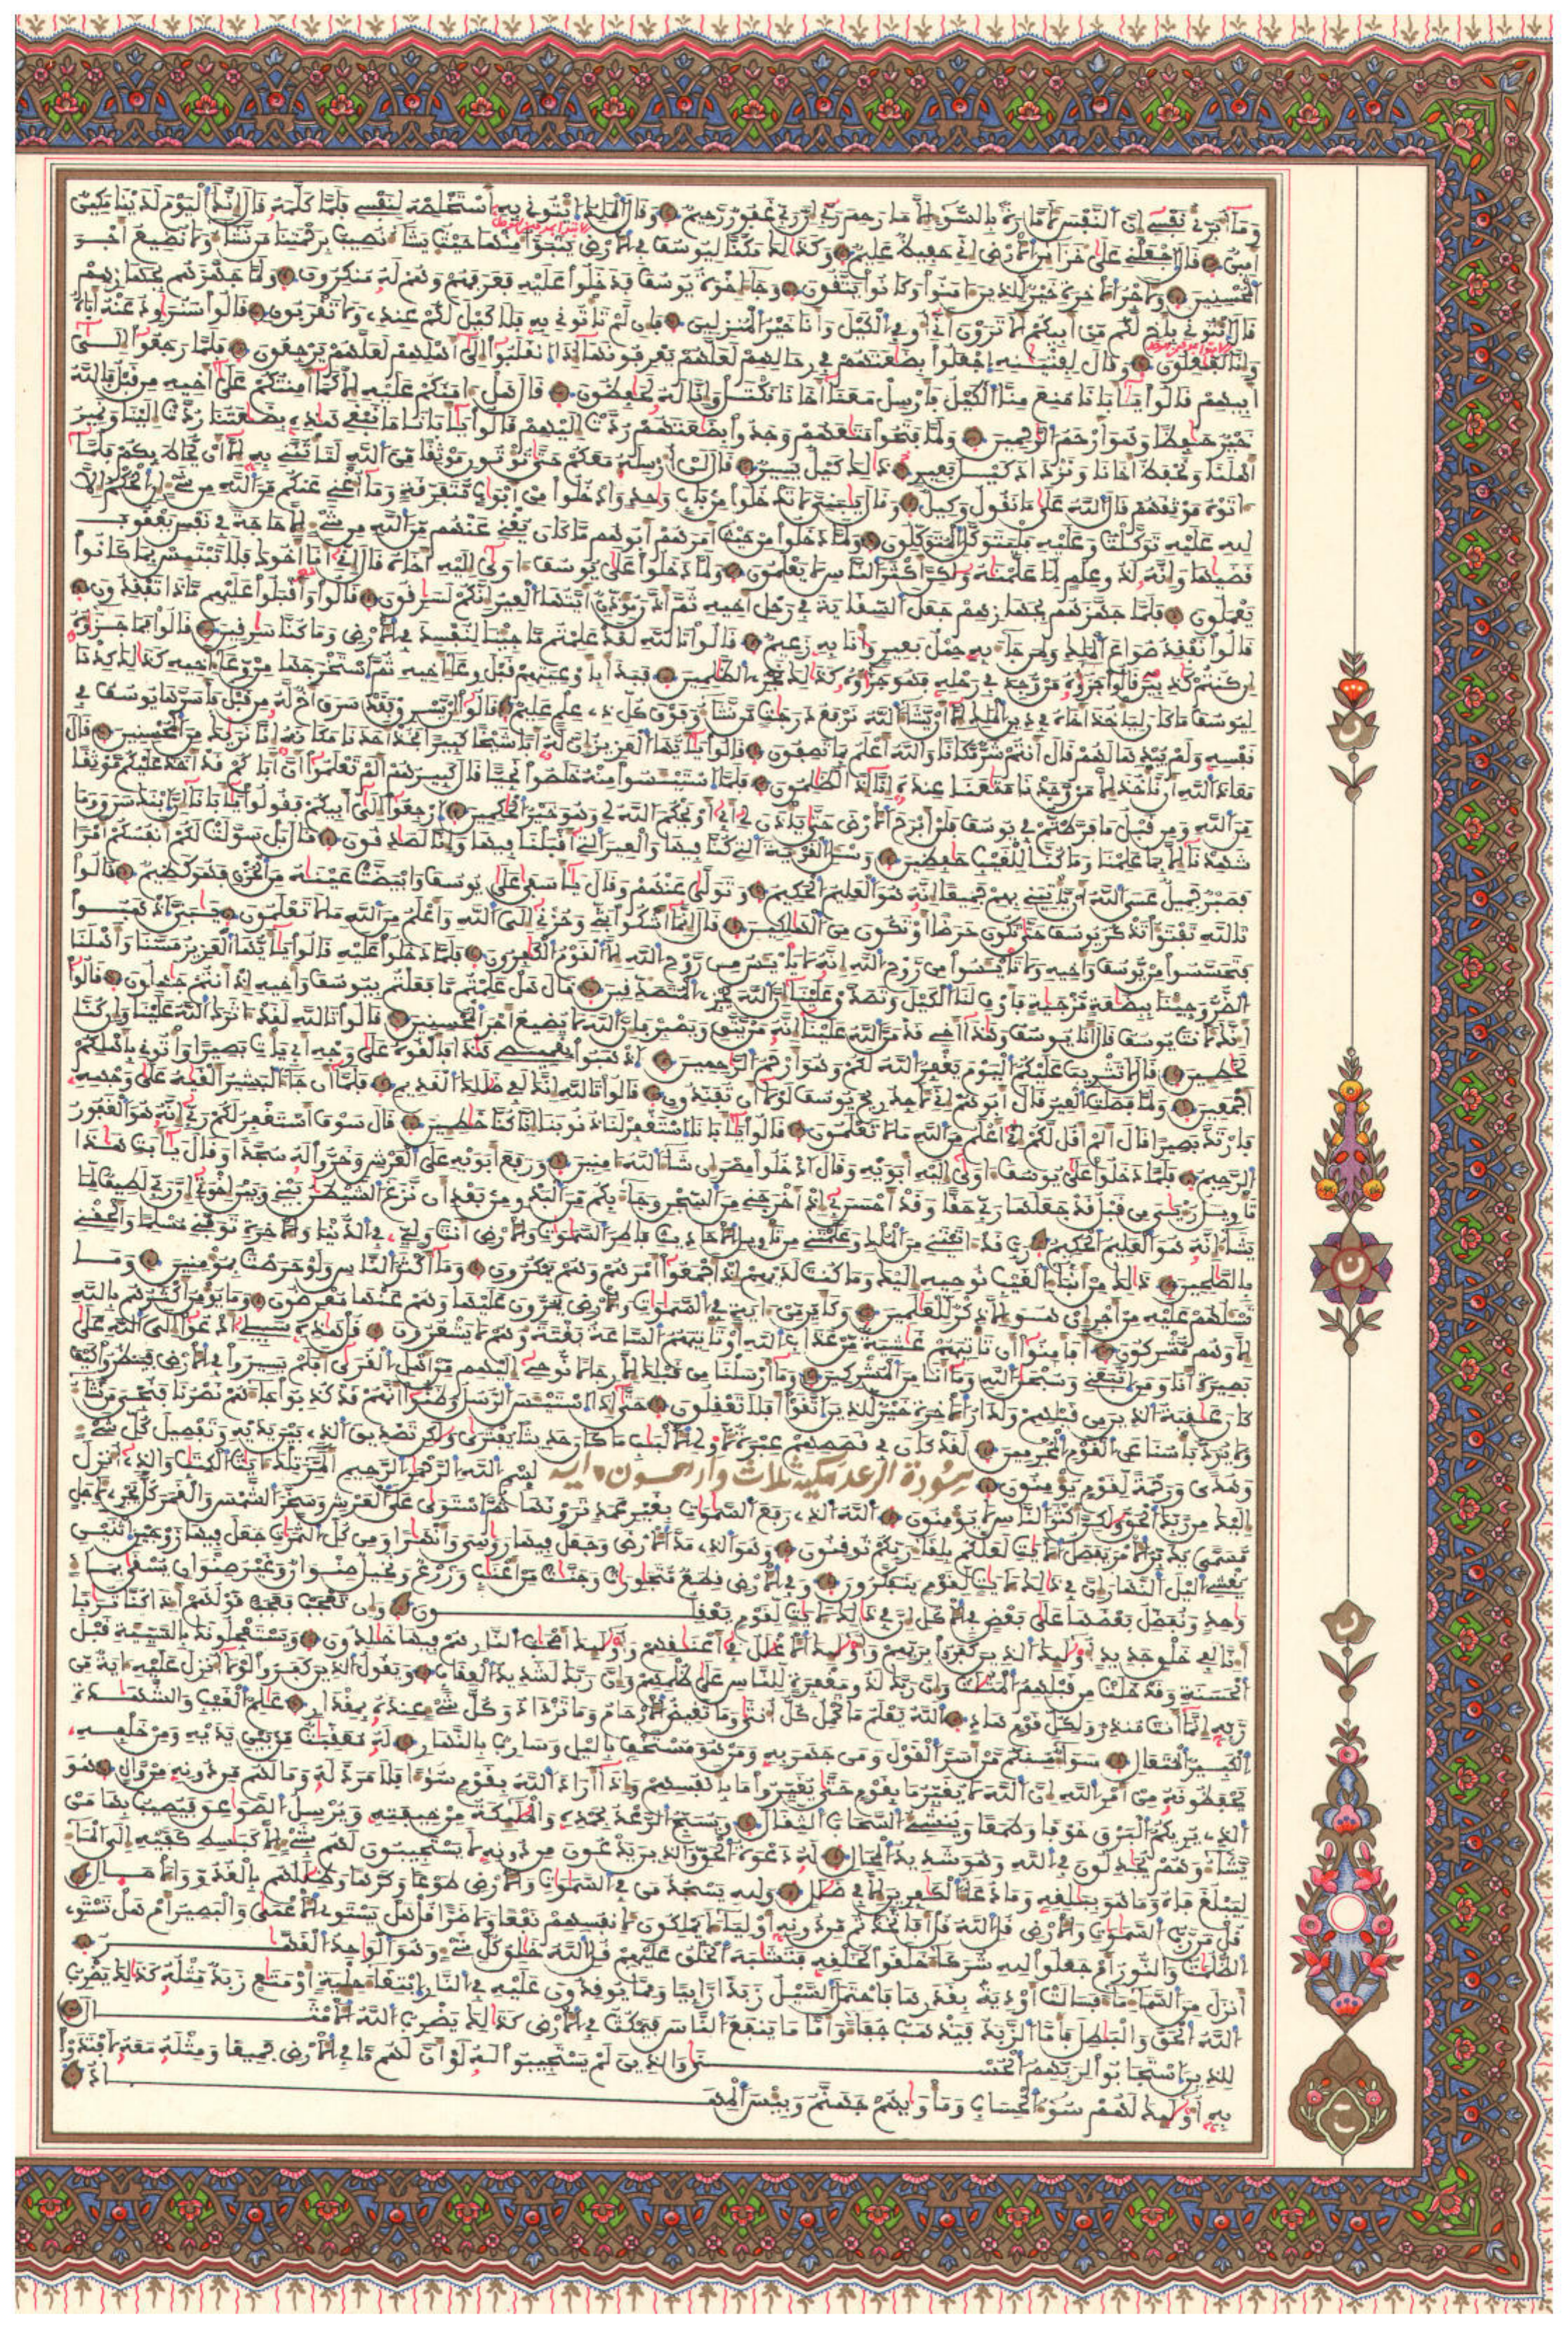 وما أبرئ نفسي إن النفس لأمارة بالسوء إلا ما رحم ربي إن ربي غفور رحيم وقال الملك ايتوني به أستخلصه لنفسي فلما كلمه قال إنك اليوم لدينا مكين
أمين قال اجعلني على خزائن الأرض إني حفيظ عليم وكذلك مكنا ليوسف في الأرض يتبوأ منها حيث يشاء نصيب برحمتنا من نشاء ولا نضيع أجر
المحسنين ولأجر الآخرة خير للذين ءامنوا وكانوا يتقون وجاء إخوة يوسف فدخلوا عليه فعرفهم وهم له منكرون ولما جهزهم بجهازهم
قال ايتوني بأخ لكم من أبيكم ألا ترون أني أوفي الكيل وأنا خير المنزلين فإن لم تاتوني به فلا كيل لكم عندي ولا تقربون قالوا سنراود عنه أباه
وإنا لفعلون وقال لفتيته اجعلوا بضعتهم في رحالهم لعلهم يعرفونها إذا انقلبوا إلى أهلهم لعلهم يرجعون فلما رجعوا إلى
أبيهم قالوا يأبانا منع منا الكيل فأرسل معنا أخانا نكتل وإنا له لحفظون قال هل ءامنكم عليه إلا كما أمنتكم على أخيه من قبل فالله
خير حفظا وهو أرحم الرحمين ولما فتحوا متعهم وجدوا بضعتهم ردت إليهم قالوا يأبانا ما نبغي هذه بضعتنا ردت إلينا ونمير
أهلنا ونحفظ أخانا ونزداد كيل بعير ذلك كيل يسير قال لن أرسله معكم حتى توتون موثقا من الله لتاتنني به إلا أن يحاط بكم فلما
ءاتوه موثقهم قال الله على ما نقول وكيل وقال يبني لا تدخلوا من باب واحد وادخلوا من أبواب متفرقة وما أغني عنكم من الله من شيء إن الحكم إلا
لله عليه توكلت وعليه فليتوكل المتوكلون ولما دخلوا من حيث أمرهم أبوهم ما كان يغني عنهم من الله من شيء إلا حاجة في نفس يعقوب
قضيها وإنه لذو علم لما علمنه ولكن أكثر الناس لا يعلمون ولما دخلوا على يوسف ءاوى إليه أخاه قال إني أنا أخوك فلا تبتئس بما كانوا
يعملون فلما جهزهم بجهازهم جعل السقاية في رحل أخيه ثم أذن موذن أيتها العير إنكم لسرقون قالوا وأقبلوا عليهم ماذا تفقدون
قالوا نفقد صواع الملك ولمن جاء به حمل بعير وأنا به زعيم قالوا تالله لقد علمتم ما جئنا لنفسد في الأرض وما كنا سرقين قالوا فما جزؤه
إن كنتم كذبين قالوا جزؤه من وجد في رحله فهو جزؤه كذلك نجزي الظلمين فبدأ بأوعيتهم قبل وعاء أخيه ثم استخرجها من وعاء أخيه كذلك كدنا
ليوسف ما كان لياخذ أخاه في دين الملك إلا أن يشاء الله نرفع درجت من نشاء وفوق كل ذي علم عليم قالوا إن يسرق فقد سرق أخ له من قبل فأسرها يوسف في
نفسه ولم يبدها لهم قال أنتم شر مكانا والله أعلم بما تصفون قالوا يأيها العزيز إن له أبا شيخا كبيرا فخذ أحدنا مكانه إنا نريك من المحسنين قال
معاذ الله أن ناخذ إلا من وجدنا متعنا عنده إنا إذا لظلمون فلما استيئسوا منه خلصوا نجيا قال كبيرهم ألم تعلموا أن أباكم قد أخذ عليكم موثقا
من الله ومن قبل ما فرطتم في يوسف فلن أبرح الأرض حتى ياذن لي أبي أو يحكم الله لي وهو خير الحكمين ارجعوا إلى أبيكم فقولوا يأبانا إن ابنك سرق وما
شهدنا إلا بما علمنا وما كنا للغيب حفظين وسئل القرية التي كنا فيها والعير التي أقبلنا فيها وإنا لصدقون قال بل سولت لكم أنفسكم أمرا
فصبر جميل عسى الله أن ياتيني بهم جميعا إنه هو العليم الحكيم وتولى عنهم وقال يأسفى على يوسف وابيضت عينه من الحزن فهو كظيم قالوا
تالله تفتؤا تذكر يوسف حتى تكون حرضا أو تكون من الهلكين قال إنما أشكوا بثي وحزني إلى الله وأعلم من الله ما لا تعلمون يبني اذهبوا
فتحسسوا من يوسف وأخيه ولا تايئسوا من روح الله إنه لا يايئس من روح الله إلا القوم الكفرون فلما دخلوا عليه قالوا يأيها العزيز مسنا وأهلنا
الضر وجئنا ببضعة مزجية فأوف لنا الكيل وتصدق علينا إن الله يجزي المتصدقين قال هل علمتم ما فعلتم بيوسف وأخيه إذ أنتم جهلون قالوا
أءنك لأنت يوسف قال أنا يوسف وهذا أخي قد من الله علينا إنه من يتق ويصبر فإن الله لا يضيع أجر المحسنين قالوا تالله لقد ءاثرك الله علينا وإن كنا
لخطين قال لا تثريب عليكم اليوم يغفر الله لكم وهو أرحم الرحمين اذهبوا بقميصي هذا فألقوه على وجه أبي يات بصيرا وأتوني بأهلكم
أجمعين ولما فصلت العير قال أبوهم إني لأجد ريح يوسف لولا أن تفندون قالوا تالله إنك لفي ضللك القديم فلما أن جاء البشير ألقيه على وجهه
فارتد بصيرا قال ألم أقل لكم إني أعلم من الله ما لا تعلمون قالوا يأبانا استغفر لنا ذنوبنا إنا كنا خطين قال سوف أستغفر لكم ربي إنه هو الغفور
الرحيم فلما دخلوا على يوسف ءاوى إليه أبويه وقال ادخلوا مصر إن شاء الله ءامنين ورفع أبويه على العرش وخروا له سجدا وقال يأبت هذا
تاويل رءيي من قبل قد جعلها ربي حقا وقد أحسن بي إذ أخرجني من السجن وجاء بكم من البدو من بعد أن نزغ الشيطن بيني وبين إخوتي إن ربي لطيف لما
يشاء إنه هو العليم الحكيم رب قد ءاتيتني من الملك وعلمتني من تاويل الأحاديث فاطر السموت والأرض أنت وليي في الدنيا والآخرة توفني مسلما وألحقني
بالصلحين ذلك من أنباء الغيب نوحيه إليك وما كنت لديهم إذ أجمعوا أمرهم وهم يمكرون وما أكثر الناس ولو حرصت بمومنين وما
تسئلهم عليه من أجر إن هو إلا ذكر للعلمين وكأين من ءاية في السموت والأرض يمرون عليها وهم عنها معرضون وما يومن أكثرهم بالله
إلا وهم مشركون أفأمنوا أن تاتيهم غشية من عذاب الله أو تاتيهم الساعة بغتة وهم لا يشعرون قل هذه سبيلي أدعوا إلى الله على
بصيرة أنا ومن اتبعني وسبحن الله وما أنا من المشركين وما أرسلنا من قبلك إلا رجالا يوحى إليهم من أهل القرى أفلم يسيروا في الأرض فينظروا كيف
كان عقبة الذين من قبلهم ولدار الآخرة خير للذين اتقوا أفلا تعقلون حتى إذا استيئس الرسل وظنوا أنهم قد كذبوا جاءهم نصرنا فننجي من نشاء
ولا يرد بأسنا عن القوم المجرمين لقد كان في قصصهم عبرة لأولي الألبب ما كان حديثا يفترى ولكن تصديق الذي بين يديه وتفصيل كل شيء
وهدى ورحمة لقوم يومنون سورة الرعد مكية ثلاث وأربعون ءاية بسم الله الرحمن الرحيم المر تلك ءايت الكتب والذي أنزل
إليك من ربك الحق ولكن أكثر الناس لا يومنون الله الذي رفع السموت بغير عمد ترونها ثم استوى على العرش وسخر الشمس والقمر كل يجري لأجل
مسمى يدبر الأمر يفصل الآيت لعلكم بلقاء ربكم توقنون وهو الذي مد الأرض وجعل فيها روسي وأنهرا ومن كل الثمرت جعل فيها زوجين اثنين
يغشي اليل النهار إن في ذلك لآيت لقوم يتفكرون وفي الأرض قطع متجورت وجنت من أعنب وزرع ونخيل صنوان وغير صنوان يسقى بماء
وحد ونفضل بعضها على بعض في الأكل إن في ذلك لآيت لقوم يعقلون وإن تعجب فعجب قولهم أءذا كنا تربا
إنا لفي خلق جديد أولئك الذين كفروا بربهم وأولئك الأغلل في أعنقهم وأولئك أصحب النار هم فيها خلدون ويستعجلونك بالسيئة قبل
الحسنة وقد خلت من قبلهم المثلت وإن ربك لذو مغفرة للناس على ظلمهم وإن ربك لشديد العقاب ويقول الذين كفروا لولا أنزل عليه ءاية من
ربه إنما أنت منذر ولكل قوم هاد الله يعلم ما تحمل كل أنثى وما تغيض الأرحام وما تزداد وكل شيء عنده بمقدار علم الغيب والشهدة
الكبير المتعال سواء منكم من أسر القول ومن جهر به ومن هو مستخف باليل وسارب بالنهار له معقبت من بين يديه ومن خلفه
يحفظونه من أمر الله إن الله لا يغير ما بقوم حتى يغيروا ما بأنفسهم وإذا أراد الله بقوم سوءا فلا مرد له وما لهم من دونه من وال هو
الذي يريكم البرق خوفا وطمعا وينشئ السحاب الثقال ويسبح الرعد بحمده والملئكة من خيفته ويرسل الصوعق فيصيب بها من
يشاء وهم يجدلون في الله وهو شديد المحال له دعوة الحق والذين يدعون من دونه لا يستجيبون لهم بشيء إلا كبسط كفيه إلى الماء
ليبلغ فاه وما هو ببلغه وما دعاء الكفرين إلا في ضلل ولله يسجد من في السموت والأرض طوعا وكرها وظللهم بالغدو والآصال
قل من رب السموت والأرض قل الله قل أفاتخذتم من دونه أولياء لا يملكون لأنفسهم نفعا ولا ضرا قل هل يستوي الأعمى والبصير أم هل تستوي
الظلمت والنور أم جعلوا لله شركاء خلقوا كخلقه فتشبه الخلق عليهم قل الله خلق كل شيء وهو الوحد القهر
أنزل من السماء ماء فسالت أودية بقدرها فاحتمل السيل زبدا رابيا ومما توقدون عليه في النار ابتغاء حلية أو متع زبد مثله كذلك يضرب
الله الحق والبطل فأما الزبد فيذهب جفاء وأما ما ينفع الناس فيمكث في الأرض كذلك يضرب الله الأمثال
للذين استجابوا لربهم الحسنى والذين لم يستجيبوا له لو أن لهم ما في الأرض جميعا ومثله معه لافتدوا
به أولئك لهم سوء الحساب ومأويهم جهنم وبيس المهاد